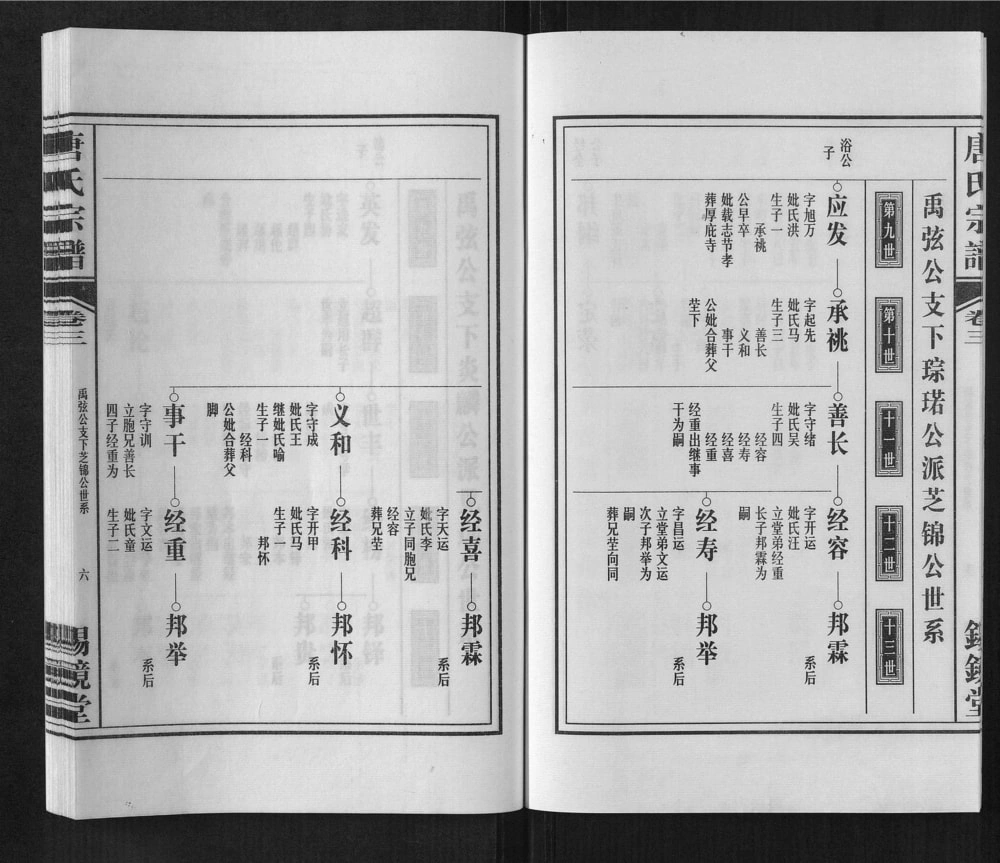 唐氏宗谱
卷三
锡镜堂
禹弦公支下琮珺公派芝锦公世系
第九世
第十世
十一世
十二世
十三世
浴公
子
应发
字旭万
妣氏洪
生子一
承祧
公早卒
妣载志节孝
葬厚庇寺
承祧
字起先
妣氏马
生子三
善长
义和
事干
公妣合葬父
茔下
善长
字守绪
妣氏吴
生子四
经容
经寿
经喜
经重
经重出继事
干为嗣
经容
字开运
妣氏汪
立堂弟经重
长子邦霖为
嗣
邦霖
系后
经寿
字昌运
立堂弟文运
次子邦举为
嗣
葬兄茔向同
邦举
系后
经喜
字天运
妣氏李
立子同胞兄
经容
葬兄茔
邦霖
系后
义和
字守成
妣氏王
继妣氏喻
生子一
经科
公妣合葬父
脚
经科
字开甲
妣氏马
生子一
邦怀
邦怀
系后
事干
字守训
立胞兄善长
四子经重为
经重
字文运
妣氏童
生子二
邦举
系后
唐氏宗谱
卷三
禹弦公支下芝锦公世系
六
锡镜堂